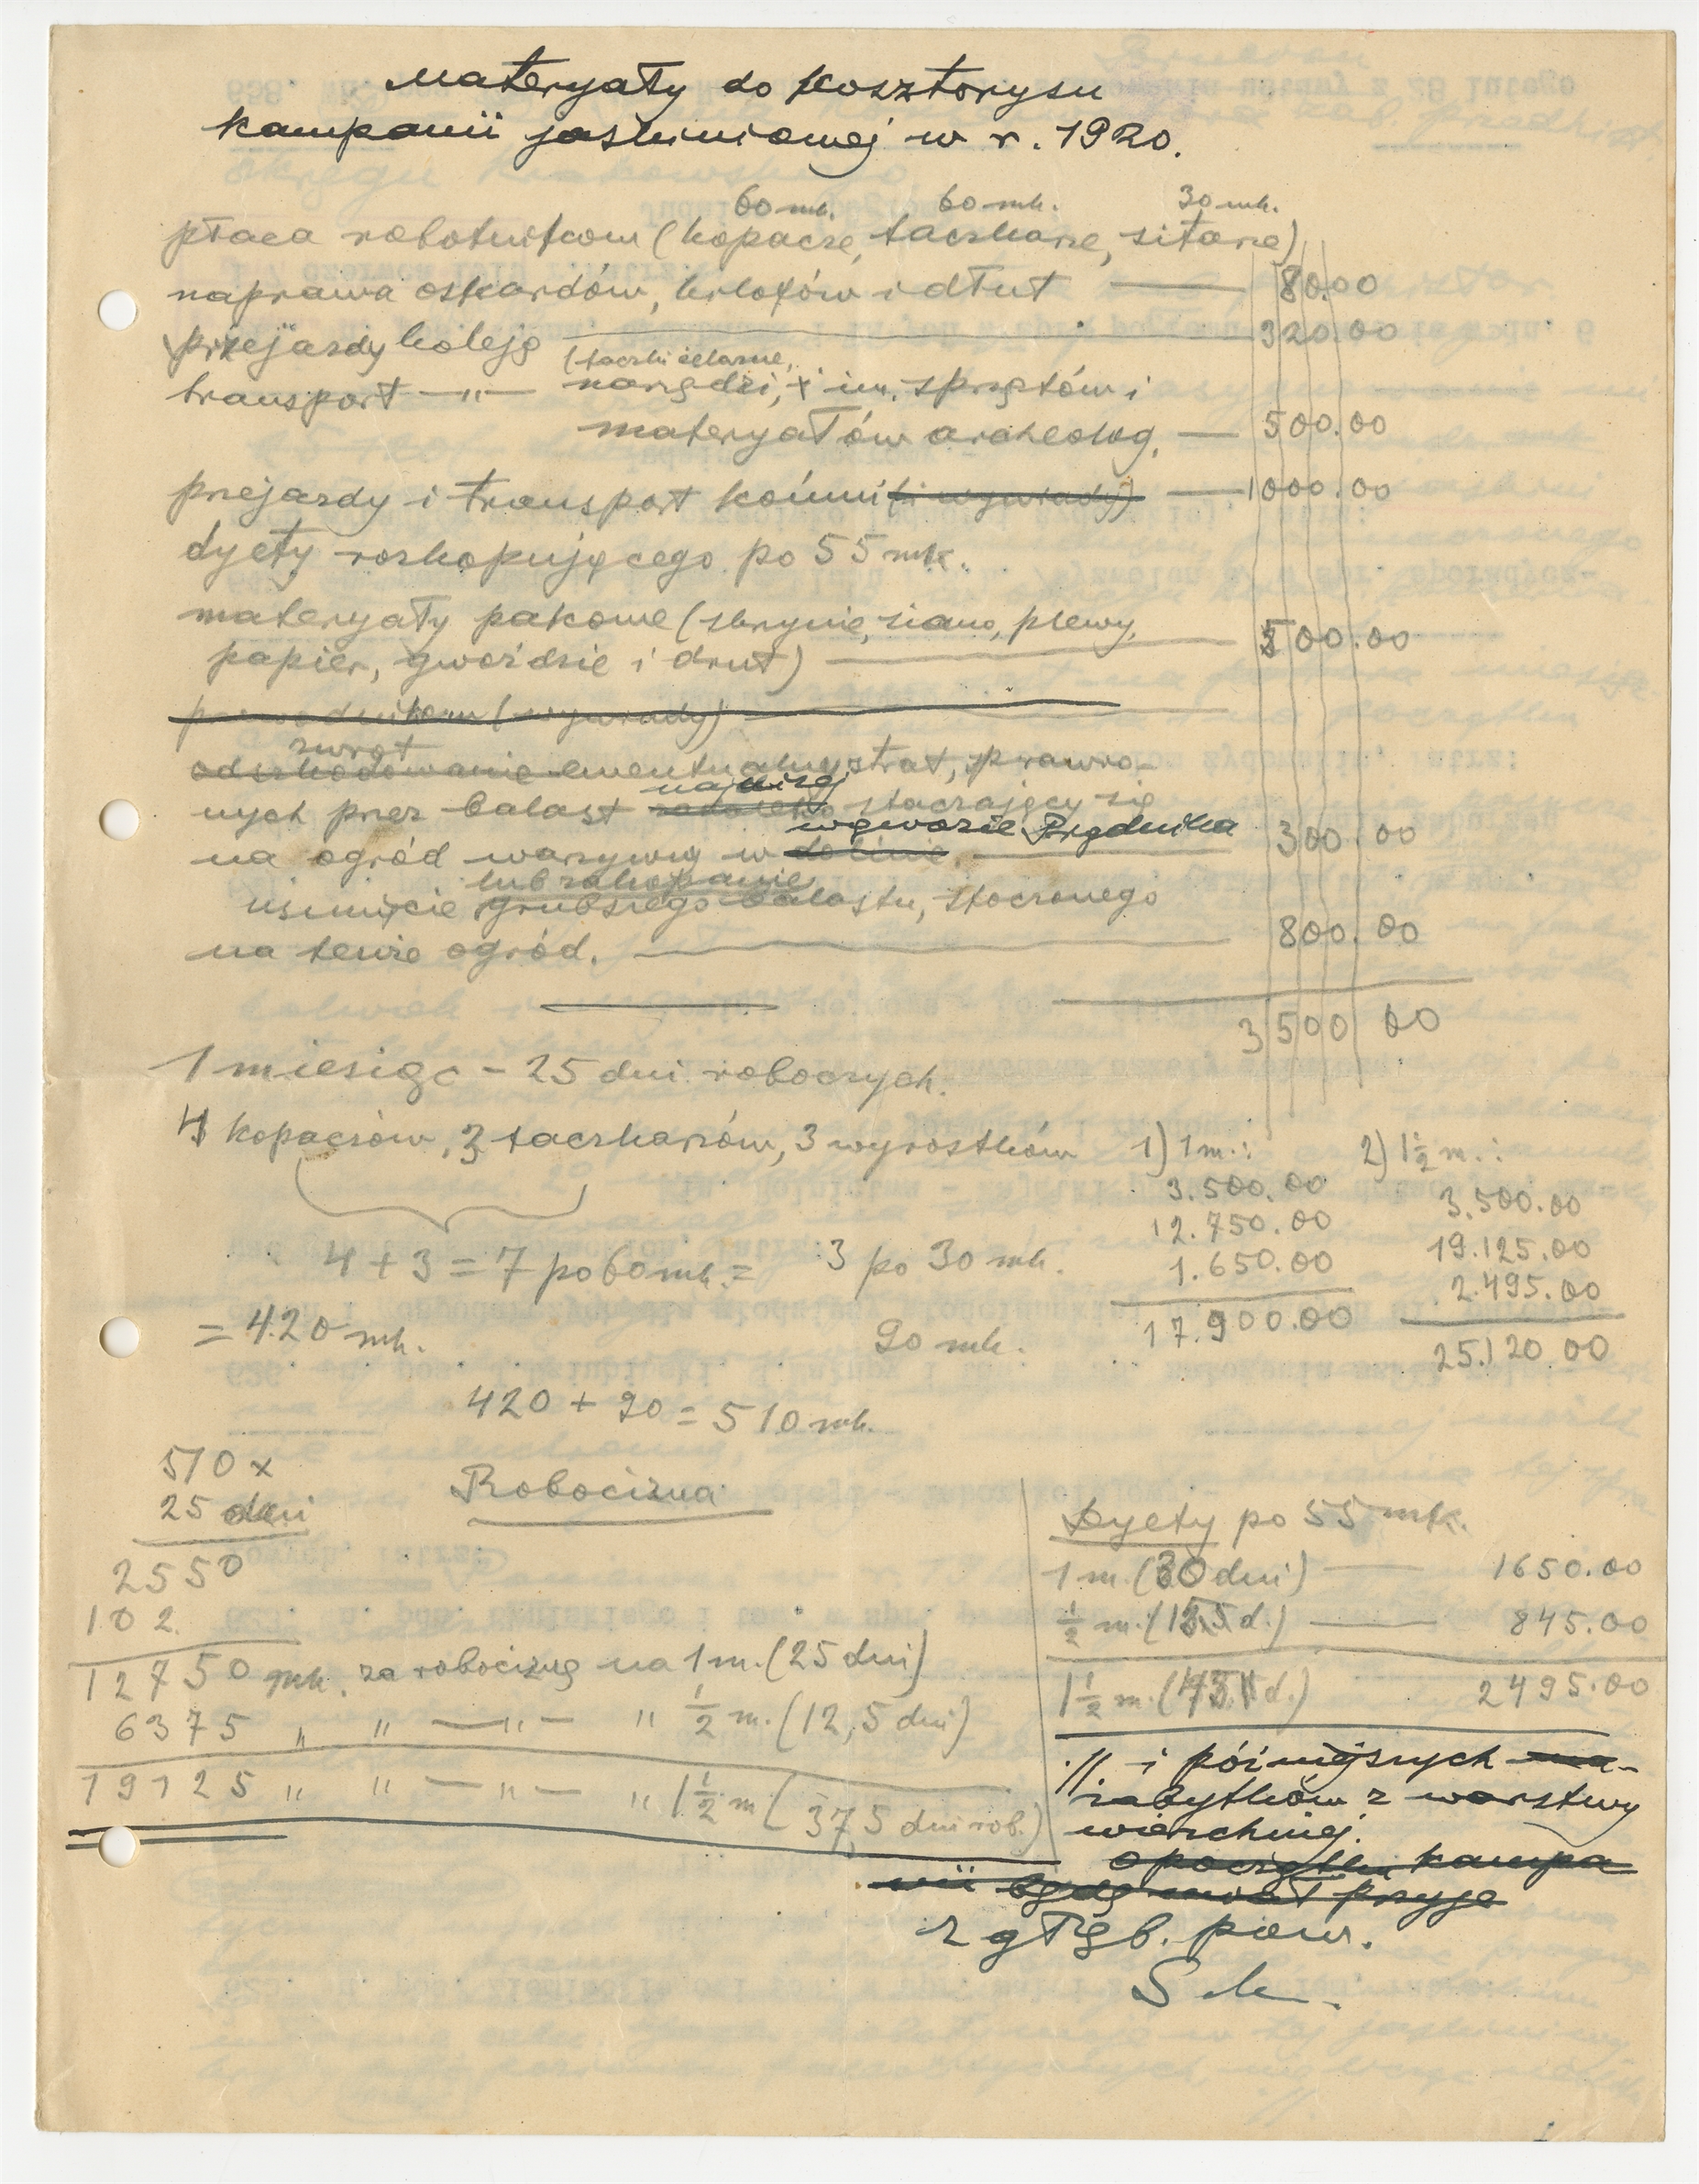 Materyały do kosztorysu
kampanii jaskiniowej w r. 1920.
60 mk. 60 mk. 30 mk.
płaca robotnikom (kopacze, taczkarze, sitarze)
naprawa oskardów, kilofów i dłut — 80.00
przejazdy koleją — 320.00
(taczki żelazne,
transport —„— narzędzi, + in. sprzętów i
materyałów archeolog. — 500.00
przejazdy i transport końmi (i wywiady) — 1000.00
dyety rozkopującego po 55 mk.
materyały pakowe (skrzynie, siano, plewy,
papier, gwoździe i drut) — 500.00
przewodnikom (wywiady)
zwrot
odszkodowanie ewentualnych strat, sprawio-
najwięcej
nych przez balast staczający się
wąwozie Prądnika
na ogród warzywny w dolinie — 300.00
lub zakopanie
usunięcie grubszego balastu, stoczonego
na tenże ogród. — 800.00
3500 00
1 miesiąc - 25 dni roboczych.
4 kopaczów, 3 taczkarzów, 3 wyrostków
4 + 3 = 7 po 60 mk. = 3 po 30 mk.
= 420 mk. 90 mk.
420 + 90 = 510 mk.
1) 1 m.:
3.500.00
12.750.00
1.650.00
17.900.00
2) 1½ m.:
3.500.00
19.125.00
2.495.00
25.120 00
510 x
25 dni
2550
102
Robocizna
12750 mk. za robociznę na 1 m. (25 dni)
6375 „ „ —„— „ ½ m. (12,5 dni)
19125 „ „ —„— „ 1½ m (37,5 dni rob.)
Dyety po 55 mk.
1 m. (30 dni) — 1650.00
½ m. (15,5 d.) — 845.00
1½ m. ( d.) 2495.00
·// i późniejszych na-
zabytków z warstwy
wierzchniej.
o początku kampa
nii będę miał przyje
z głęb. pow.
S k.